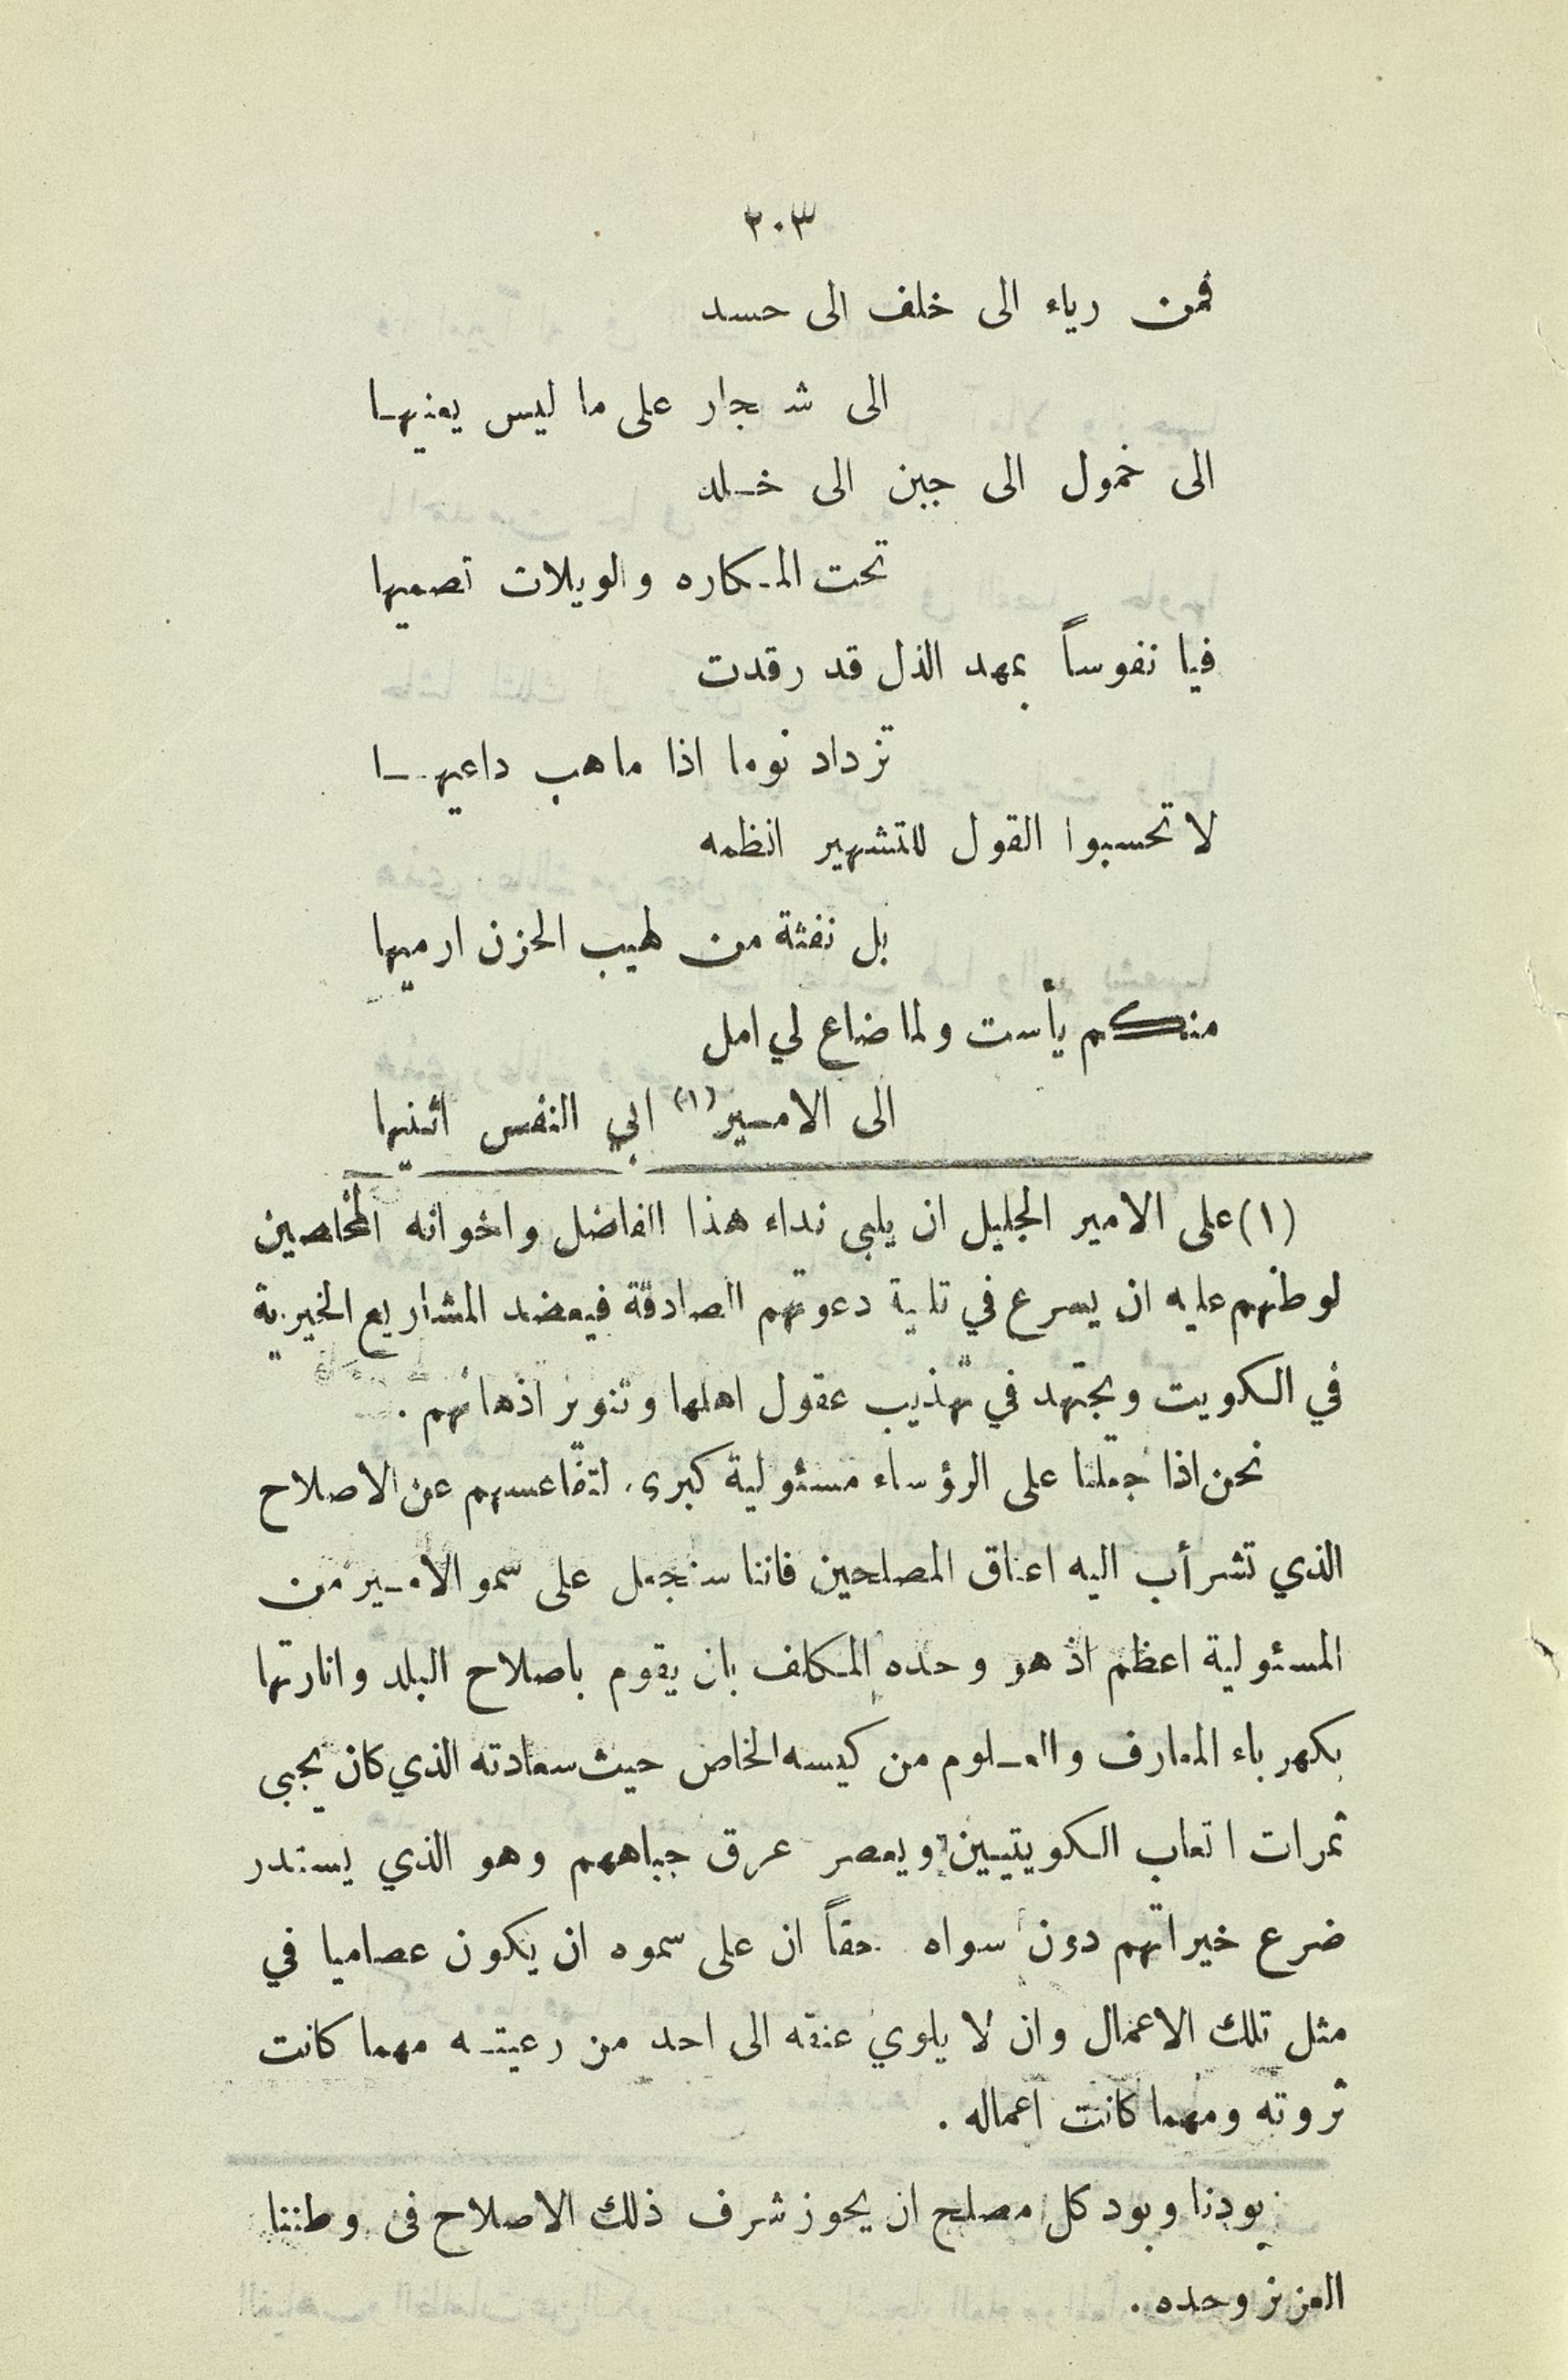 ٢٠٣
فمن رياء الى خلف الى حسد
الى شجار على ما ليس يعنيها
الى خمول الى جبن الى خلد
تحت المكاره والويلات تصميها
فيا نفوساً بمهد الذل قد رقدت
تزداد نوما اذا ما هب داعيها
لا تحسبوا القول للتشهير انظمه
بل نفثة من لهيب الحزن ارميها
منكم يأست ولما ضاع لي امل
الى الامير (١) ابي النفس اثنيها
(١) على الامير الجليل ان يلبي نداء هذا الفاضل واخوانه المخلصين
لوطنهم عليه ان يسرع في تلبية دعوتهم الصادقة فيعضد المشاريع الخيرية
في الكويت ويجتهد في تهذيب عقول اهلها وتنوير اذهانهم .
نحن اذا جعلنا على الرؤساء مسئولية كبرى لتقاعسهم عن الاصلاح
الذي تشرأب اليه اعناق المصلحين فاننا سنجعل على سمو الامير من
المسئولية اعظم اذ هو وحده المكلف بان يقوم باصلاح البلد وانارتها
بكهرباء المعارف والعلوم من كيسه الخاص حيث سعادته الذي كان يجبى
ثمرات اتعاب الكويتيين ويعصر عرق جباههم وهو الذي يستدر
ضرع خيراتهم دون سواه . حقاً ان على سموه ان يكون عصاميا في
مثل تلك الاعمال وان لا يلوي عنقه الى احد من رعيته مهما كانت
ثروته ومهما كانت اعماله .
بودنا وبود كل مصلح ان يحوز شرف ذلك الاصلاح فى وطننا
العزيز وحده .